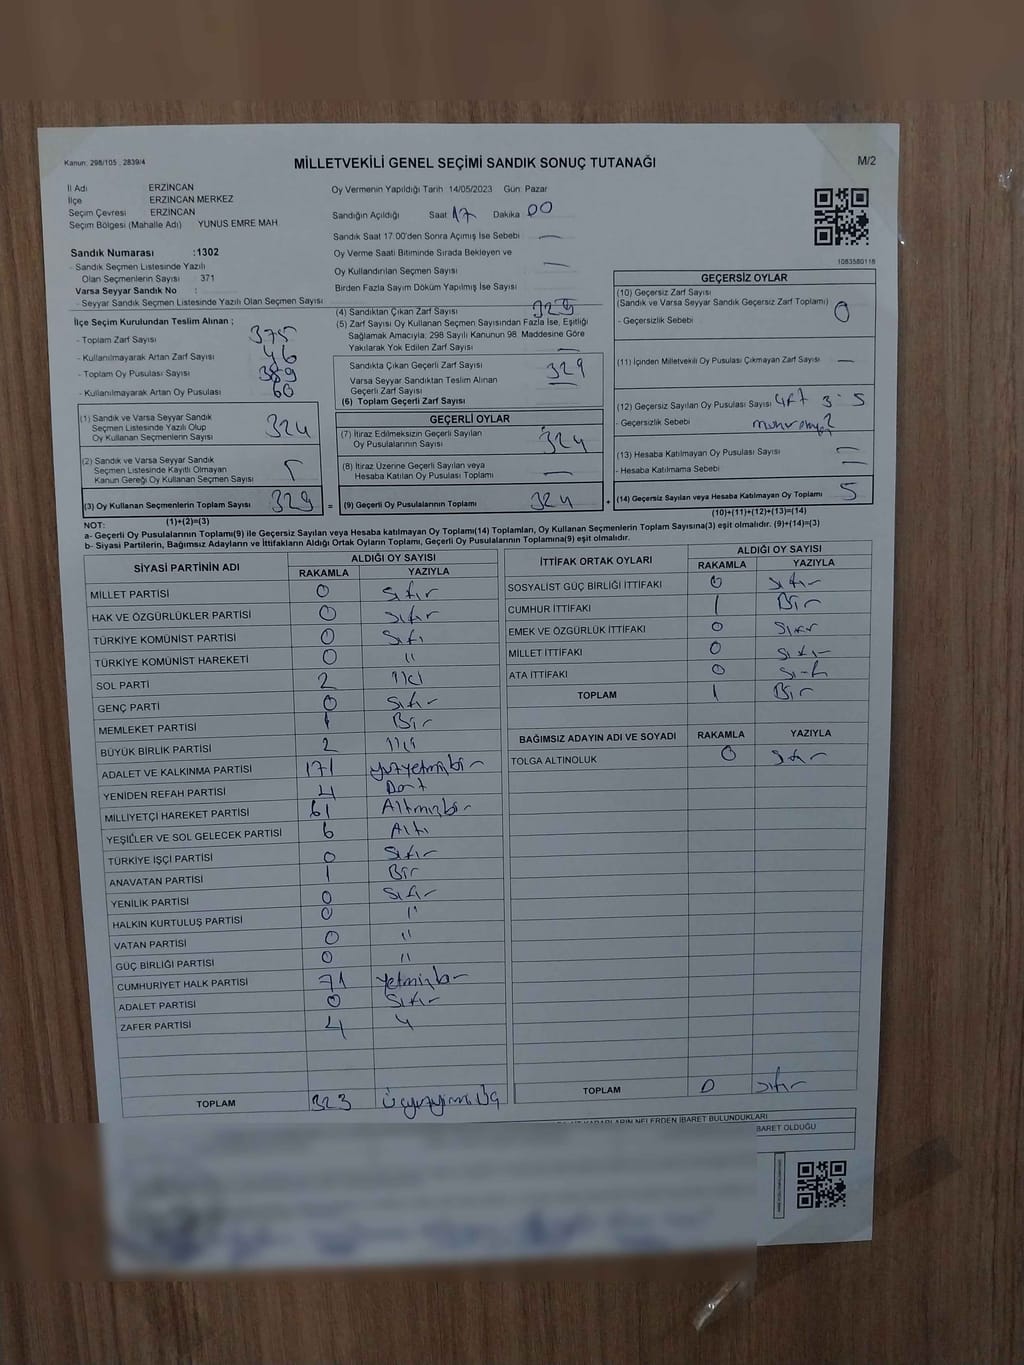 Kanun: 298/105 , 2839/4
MİLLETVEKİLİ GENEL SEÇİMİ SANDIK SONUÇ TUTANAĞI
M/2
İl Adı ERZİNCAN
İlçe ERZİNCAN MERKEZ
Seçim Çevresi ERZİNCAN
Seçim Bölgesi (Mahalle Adı) YUNUS EMRE MAH
Sandık Numarası :1302
- Sandık Seçmen Listesinde Yazılı
Olan Seçmenlerin Sayısı 371
Varsa Seyyar Sandık No :
- Seyyar Sandık Seçmen Listesinde Yazılı Olan Seçmen Sayısı
Oy Vermenin Yapıldığı Tarih 14/05/2023 Gün: Pazar
Sandığın Açıldığı Saat 17 Dakika 00
Sandık Saat 17:00'den Sonra Açımış İse Sebebi —
Oy Verme Saati Bitiminde Sırada Bekleyen ve
Oy Kullandırılan Seçmen Sayısı —
Birden Fazla Sayım Döküm Yapılmış İse Sayısı
1083580118
İlçe Seçim Kurulundan Teslim Alınan ;
- Toplam Zarf Sayısı 375
- Kullanılmayarak Artan Zarf Sayısı 46
- Toplam Oy Pusulası Sayısı 389
- Kullanılmayarak Artan Oy Pusulası 60
(1) Sandık ve Varsa Seyyar Sandık
Seçmen Listesinde Yazılı Olup
Oy Kullanan Seçmenlerin Sayısı 324
(2) Sandık ve Varsa Seyyar Sandık
Seçmen Listesinde Kayıtlı Olmayan
Kanun Gereği Oy Kullanan Seçmen Sayısı 5
(3) Oy Kullanan Seçmenlerin Toplam Sayısı 329
(1)+(2)=(3)
(4) Sandıktan Çıkan Zarf Sayısı 329
(5) Zarf Sayısı Oy Kullanan Seçmen Sayısından Fazla İse, Eşitliği
Sağlamak Amacıyla, 298 Sayılı Kanunun 98. Maddesine Göre
Yakılarak Yok Edilen Zarf Sayısı —
Sandıkta Çıkan Geçerli Zarf Sayısı 329
Varsa Seyyar Sandıktan Teslim Alınan
Geçerli Zarf Sayısı —
(6) Toplam Geçerli Zarf Sayısı
GEÇERLİ OYLAR
(7) İtiraz Edilmeksizin Geçerli Sayılan
Oy Pusulalarının Sayısı 324
(8) İtiraz Üzerine Geçerli Sayılan veya
Hesaba Katılan Oy Pusulası Toplamı —
= (9) Geçerli Oy Pusulalarının Toplamı 324 +
GEÇERSİZ OYLAR
(10) Geçersiz Zarf Sayısı
(Sandık ve Varsa Seyyar Sandık Geçersiz Zarf Toplamı)
- Geçersizlik Sebebi 0
(11) İçinden Milletvekili Oy Pusulası Çıkmayan Zarf Sayısı —
(12) Geçersiz Sayılan Oy Pusulası Sayısı 5
- Geçersizlik Sebebi
(13) Hesaba Katılmayan Oy Pusulası Sayısı —
- Hesaba Katılmama Sebebi —
(14) Geçersiz Sayılan veya Hesaba Katılmayan Oy Toplamı 5
(10)+(11)+(12)+(13)=(14)
NOT:
a- Geçerli Oy Pusulalarının Toplamı(9) ile Geçersiz Sayılan veya Hesaba katılmayan Oy Toplamı(14) Toplamları, Oy Kullanan Seçmenlerin Toplam Sayısına(3) eşit olmalıdır. (9)+(14)=(3)
b- Siyasi Partilerin, Bağımsız Adayların ve İttifakların Aldığı Ortak Oyların Toplamı, Geçerli Oy Pusulalarının Toplamına(9) eşit olmalıdır.
SİYASİ PARTİNİN ADI ALDIĞI OY SAYISI
RAKAMLA YAZIYLA
MİLLET PARTİSİ 0 sıfır
HAK VE ÖZGÜRLÜKLER PARTİSİ 0 sıfır
TÜRKİYE KOMÜNİST PARTİSİ 0 Sıfı
TÜRKİYE KOMÜNİST HAREKETİ 0 "
SOL PARTİ 2 iki
GENÇ PARTİ 0 Sıfır
MEMLEKET PARTİSİ 1 Bir
BÜYÜK BİRLİK PARTİSİ 2 iki
ADALET VE KALKINMA PARTİSİ 171 yüzyetmişbir
YENİDEN REFAH PARTİSİ 4 Dört
MİLLİYETÇİ HAREKET PARTİSİ 61 Altmışbir
YEŞİLLER VE SOL GELECEK PARTİSİ 6 Altı
TÜRKİYE İŞÇİ PARTİSİ 0 Sıfır
ANAVATAN PARTİSİ 1 Bir
YENİLİK PARTİSİ 0 Sıfır
HALKIN KURTULUŞ PARTİSİ 0 "
VATAN PARTİSİ 0 "
GÜÇ BİRLİĞİ PARTİSİ 0 "
CUMHURİYET HALK PARTİSİ 71 yetmişbir
ADALET PARTİSİ 0 Sıfır
ZAFER PARTİSİ 4 4
TOPLAM 323 Üçyüzyirmi üç
İTTİFAK ORTAK OYLARI ALDIĞI OY SAYISI
RAKAMLA YAZIYLA
SOSYALİST GÜÇ BİRLİĞİ İTTİFAKI 0 sıfır
CUMHUR İTTİFAKI 1 Bir
EMEK VE ÖZGÜRLÜK İTTİFAKI 0 Sıfır
MİLLET İTTİFAKI 0 Sıfır
ATA İTTİFAKI 0 Sıfır
TOPLAM 1 Bir
BAĞIMSIZ ADAYIN ADI VE SOYADI RAKAMLA YAZIYLA
TOLGA ALTINOLUK 0 Sıfır
TOPLAM 0 sıfır
NELERDEN İBARET BULUNDUKLARI
İBARET OLDUĞU